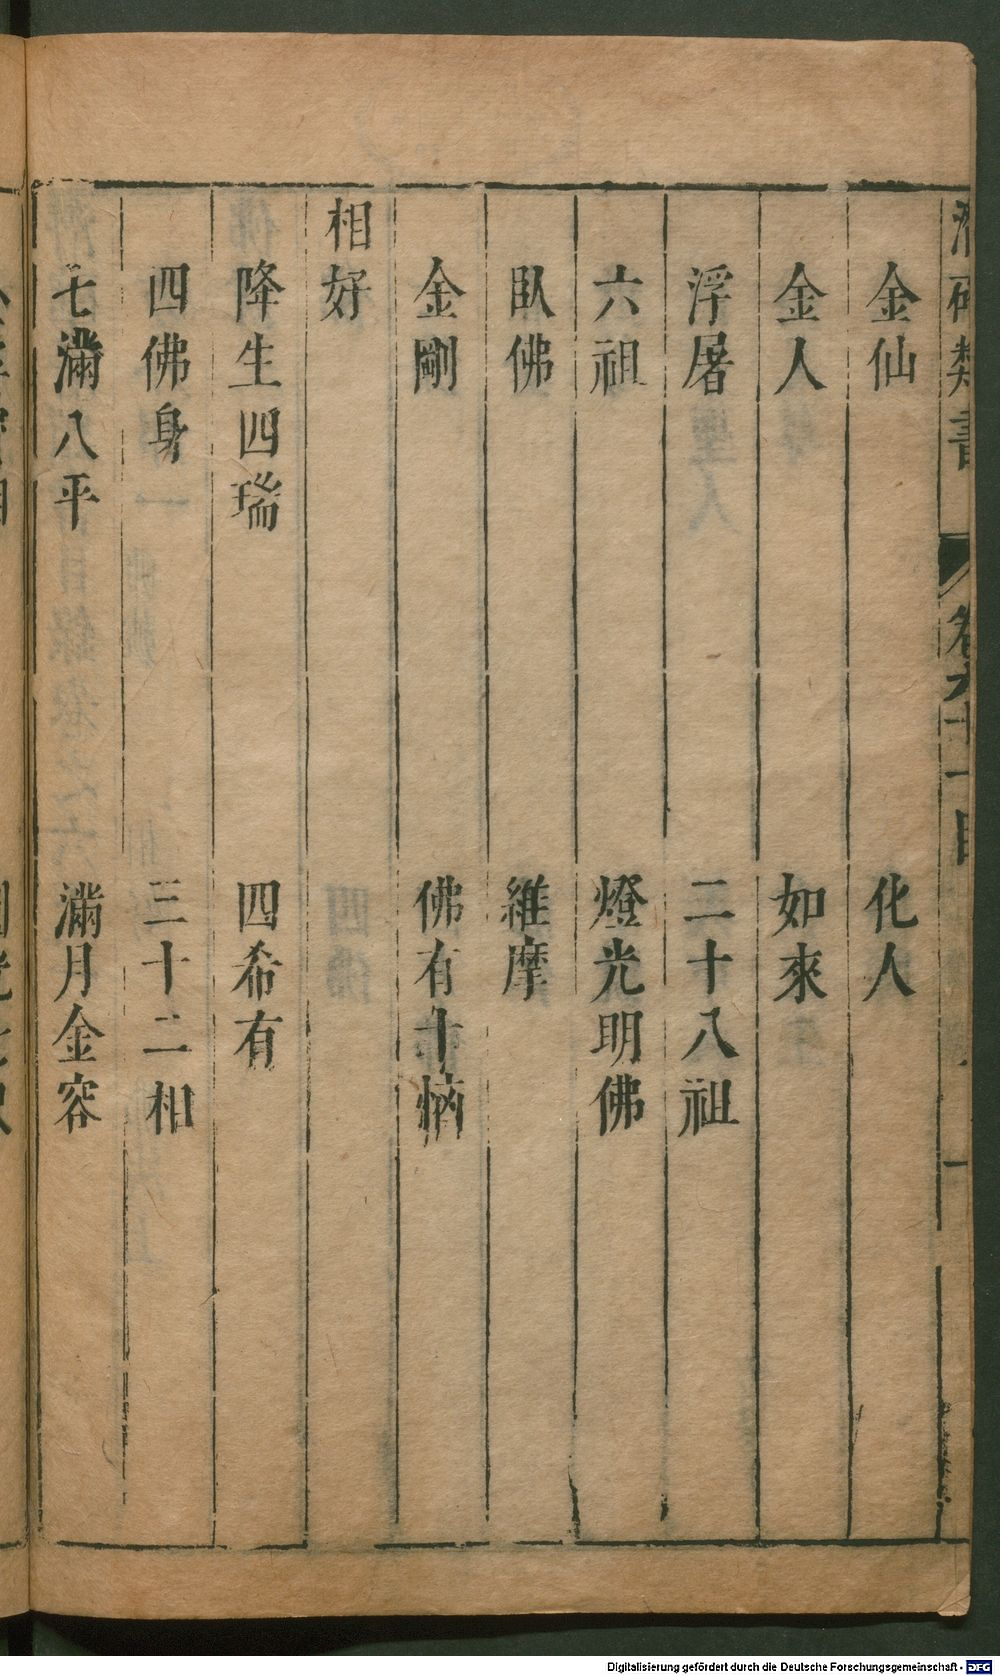 潛確類書 卷六十一目 一
金仙 化人
金人 如來
浮屠 二十八祖
六祖 燈光明佛
臥佛 維摩
金剛 佛有十惱
相好
降生四瑞 四希有
四佛身 三十二相
七滿八平 滿月金容
Digitalisierung gefördert durch die Deutsche Forschungsgemeinschaft - DFG